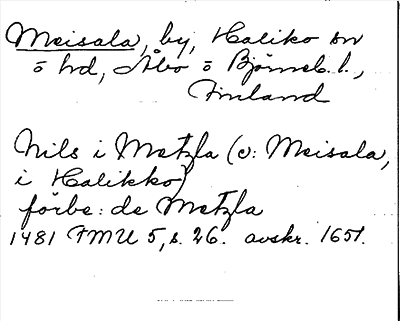 Meisala, by, Haliko sn
o hd, Åbo o Björneb. l.,
Finland
Nils i Metzla (o: Meisala,
i Halikko)
förbe: de Metzla
1481 FMU 5, s. 26. avskr. 1651.